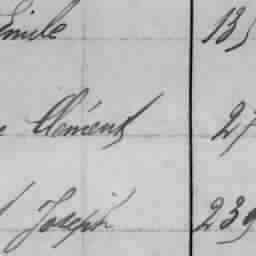 Emile 135
Clément 27
Joseph 239